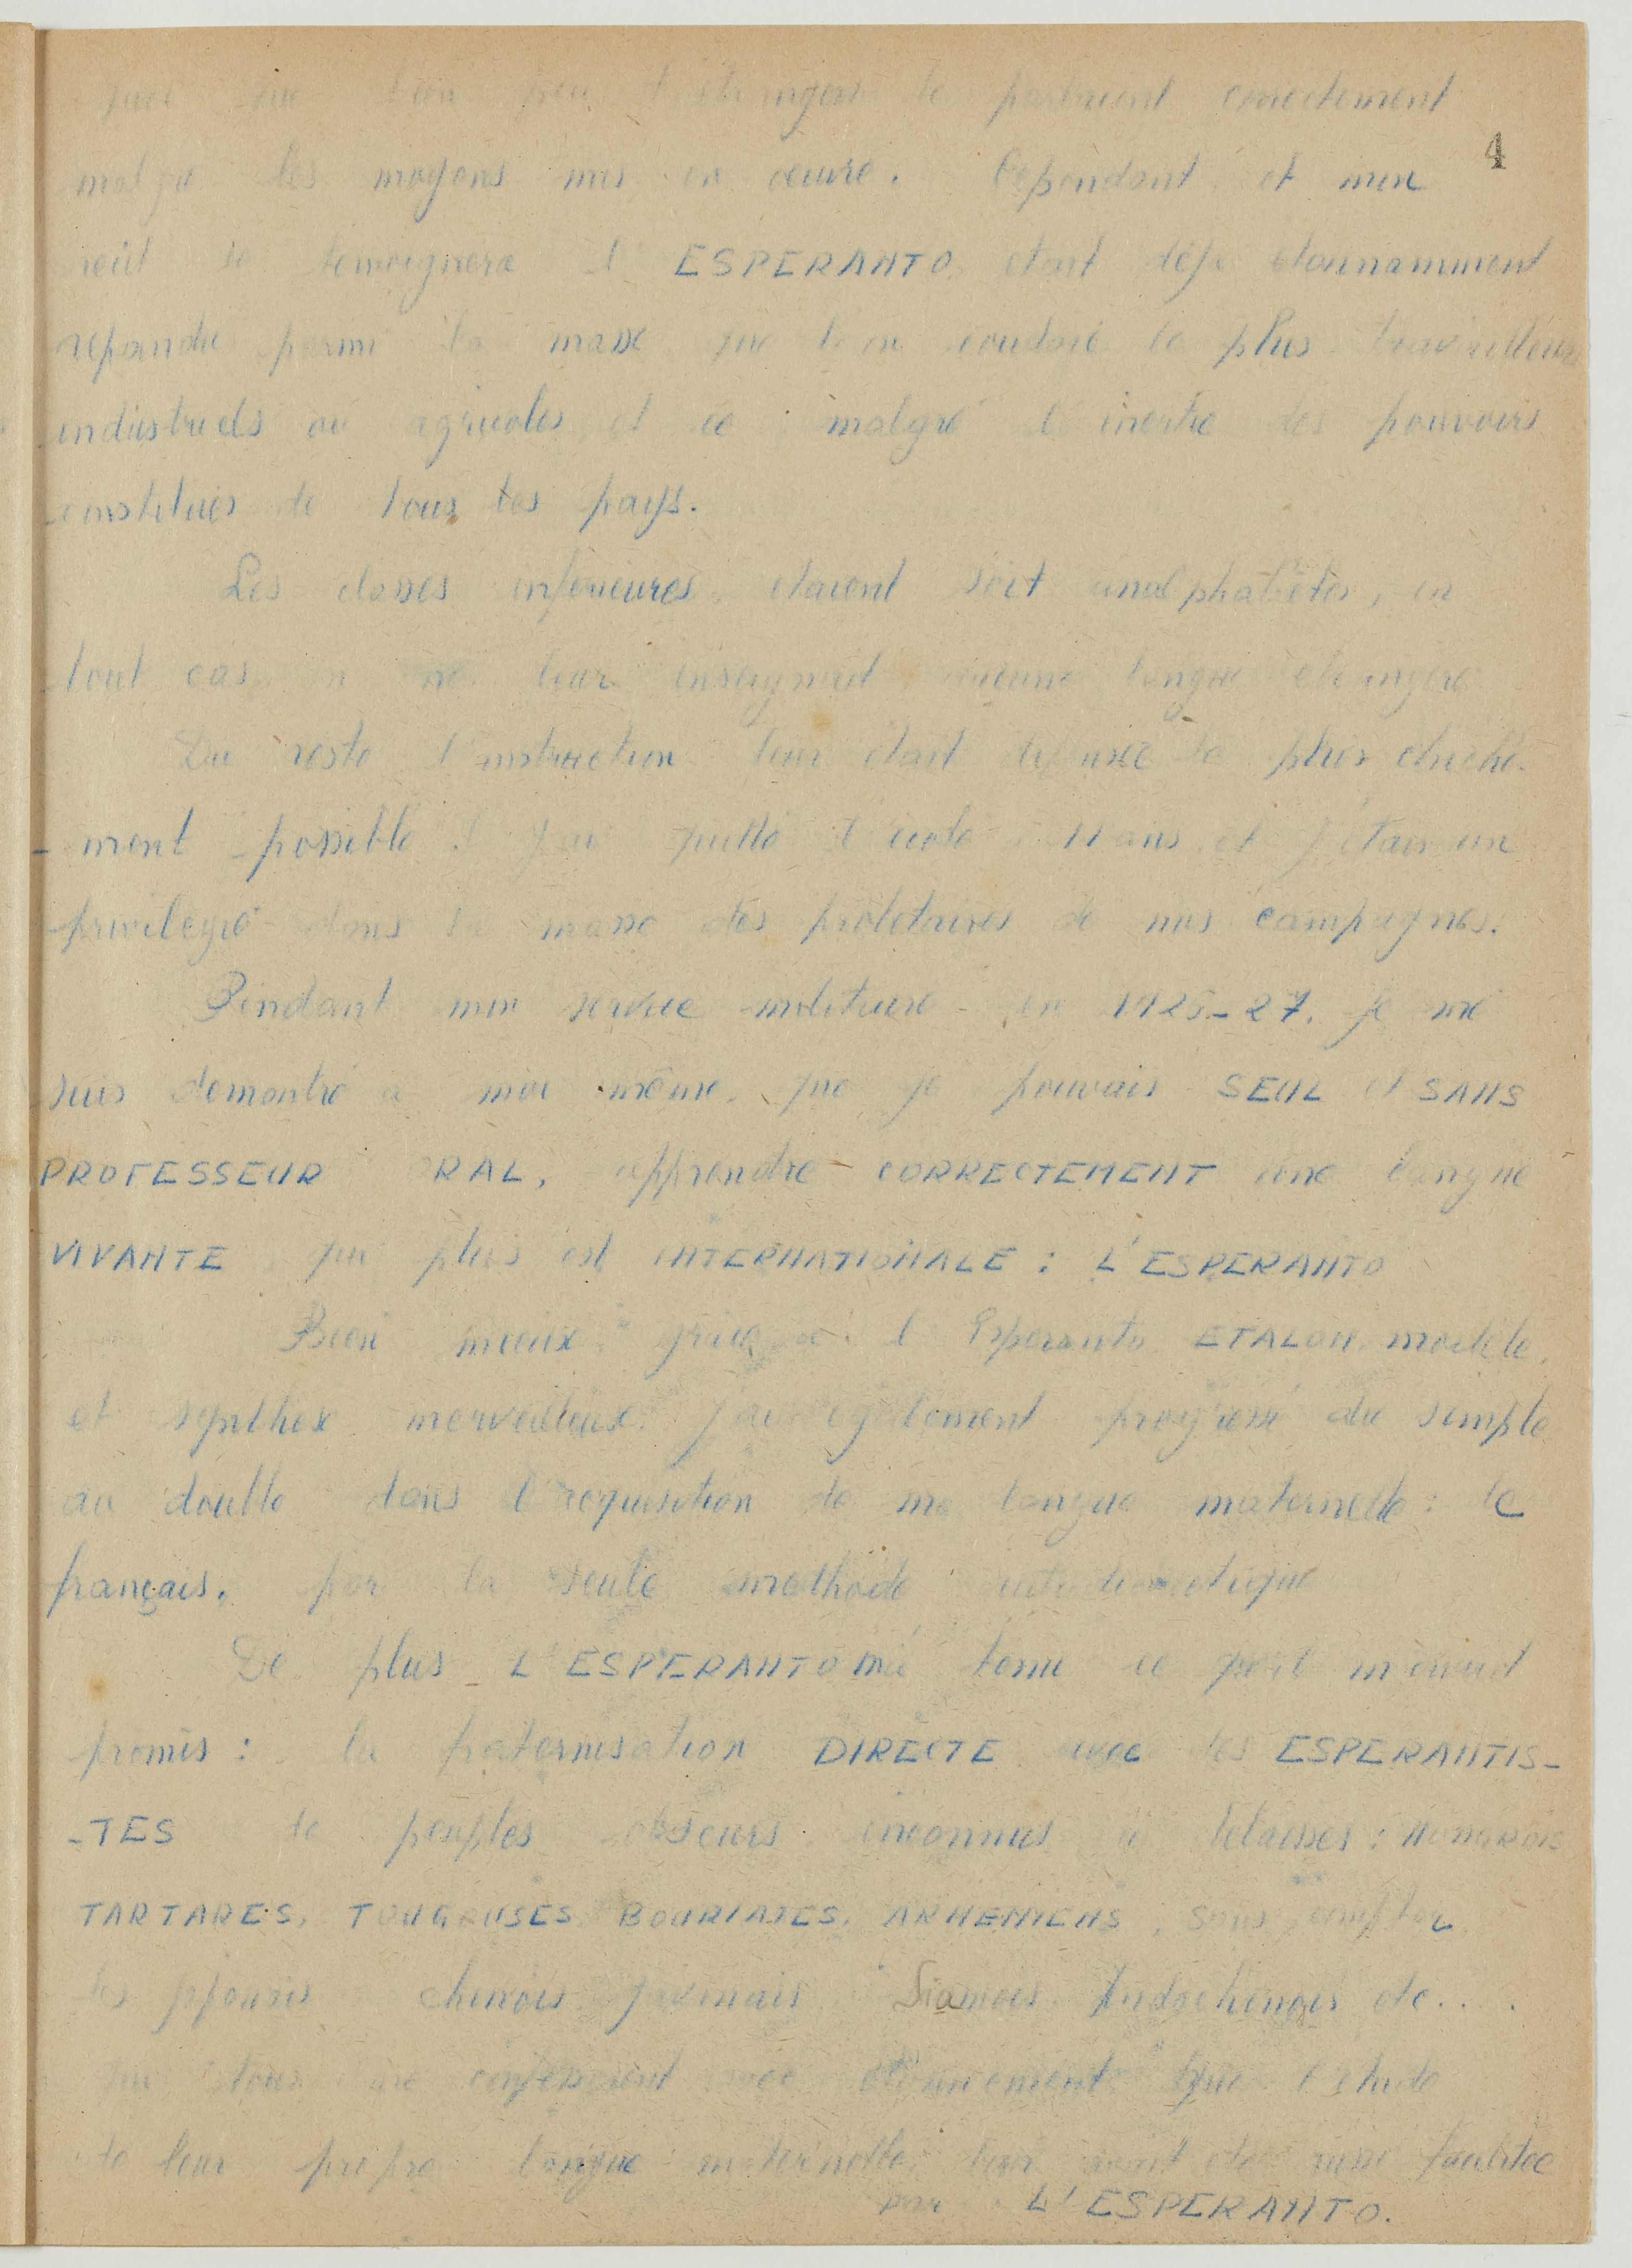 que bien peu d'etrangers le parlaient correctement
4
malgré les moyens mis en œuvre. Cependant, et mon
recit le temoignera l'ESPERANTO, etait déjà etonnamment
repandu parmi la masse que l'on coudoie le plus travailleurs
industriels ou agricoles, et ce malgré l'inertie des pouvoirs
constitués de tous les pays.
Les classes inferieures, etaient soit analphabètes, en
tout cas on ne leur enseignait aucune langue etrangère
Du reste l'instruction leur était le plus chiche-
-ment possible. J'ai quitté l'école à 11 ans, et j'étais un
privilegié dans la masse des proletaires de nos campagnes.
Pendant mon service militaire en 1926-27, je me
suis demontré à moi même, que je pouvais SEUL et SANS
PROFESSEUR ORAL, apprendre CORRECTEMENT une langue
VIVANTE qui plus est INTERNATIONALE : L'ESPERANTO
Bien mieux, grace à l'Esperanto ETALON modèle,
et synthese merveilleuse. j'ai egalement progressé du simple
au double dans l'acquisition de ma langue maternelle : le
français, par la seule methode
De plus L'ESPERANTO m'a tenu ce qu'il m'avait
promis : la fraternisation DIRECTE avec les ESPERANTIS-
-TES de peuples obscurs inconnus ou delaissés : HONGROIS
TARTARES, TOUGOUSES BOURIATES, ARMENIENS, sans compter
les japonais chinois Siamois Indochinois etc....
qui tous me confessaient avec étonnement que l'etude
de leur propre langue maternelle leur avait été aussi facilitée
par L'ESPERANTO.